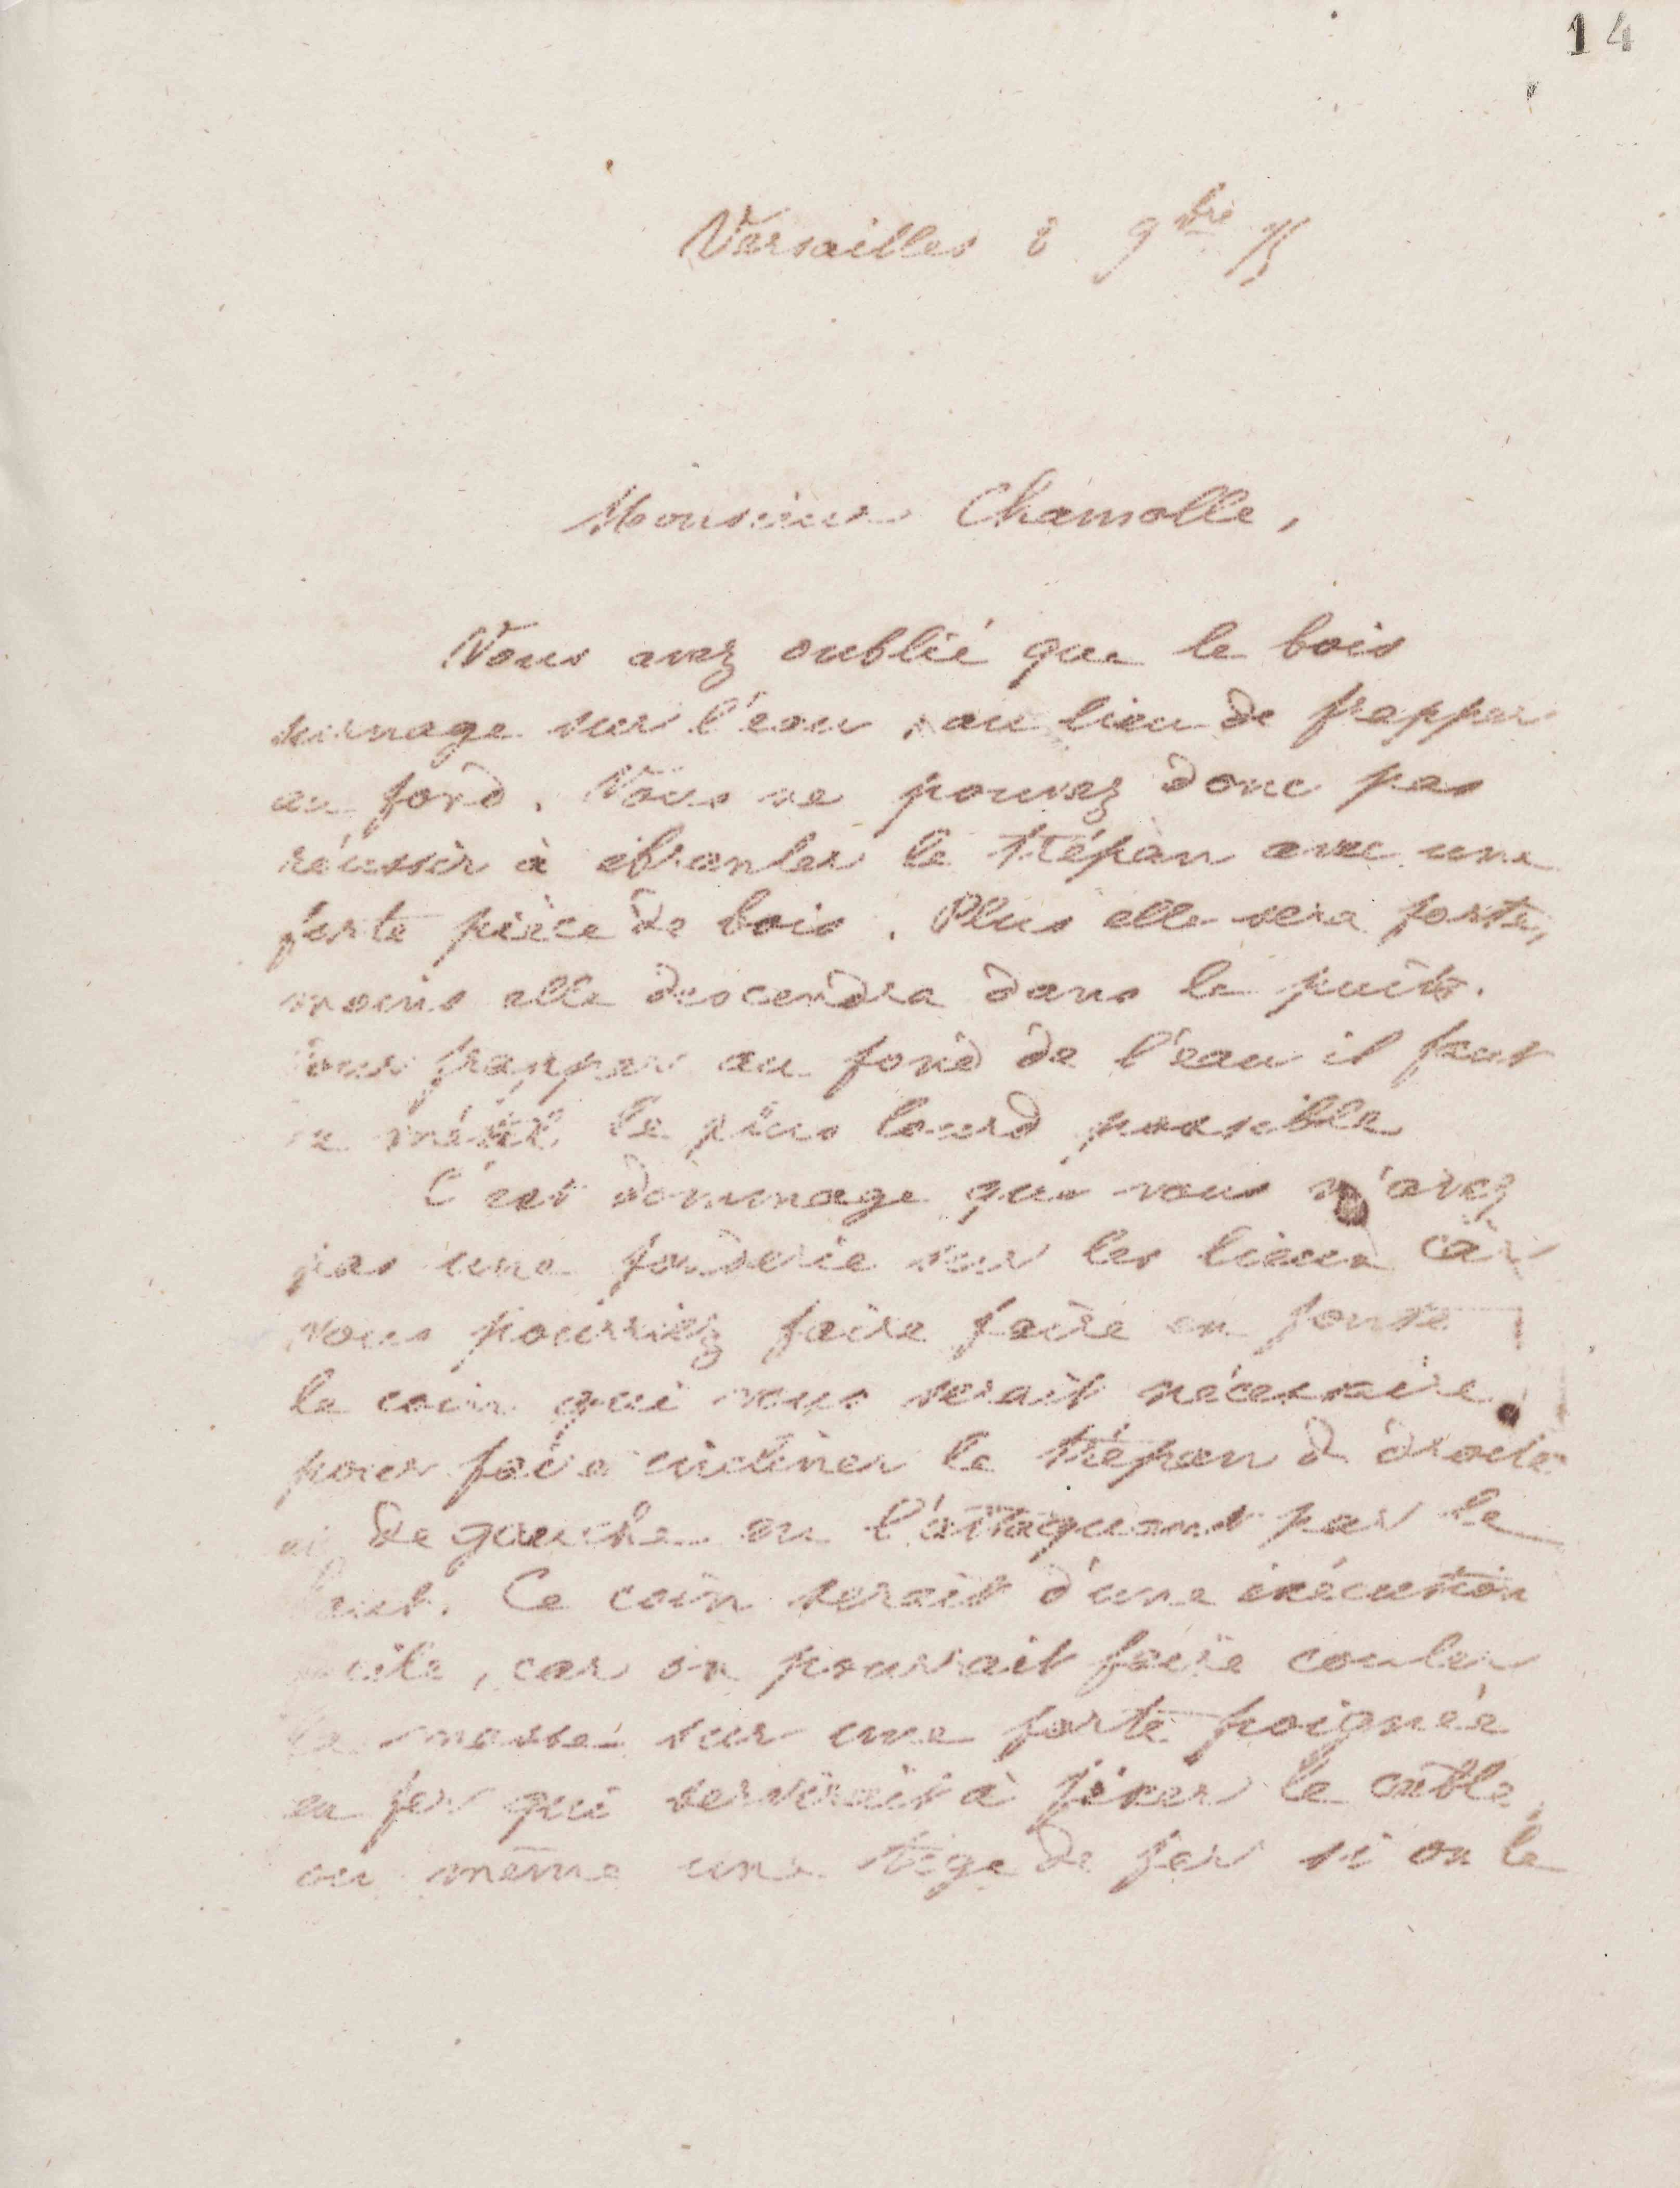 14
Versailles 8 9bre 75
Monsieur Chamolle,
Vous avez oublié que le bois
surnage sur l'eau, au lieu de frapper
au fond. Vous ne pouvez donc pas
réussir à ébranler le trépan avec une
forte pièce de bois. Plus elle sera forte,
moins elle descendra dans le puits.
Pour frapper au fond de l'eau il faut
le métal le plus lourd possible
C'est dommage que vous n'avez
pas une fonderie sur les lieux car
vous pourriez faire faire en fonte
le coin qui vous serait nécessaire
pour faire incliner le trépan à droite
ou de gauche en l'attaquant par le
haut. Ce coin serait d'une exécution
facile, car on pourrait faire couler
la masse sur une forte poignée
en fer qui servirait à fixer le câble,
ou même une tige de fer si on le